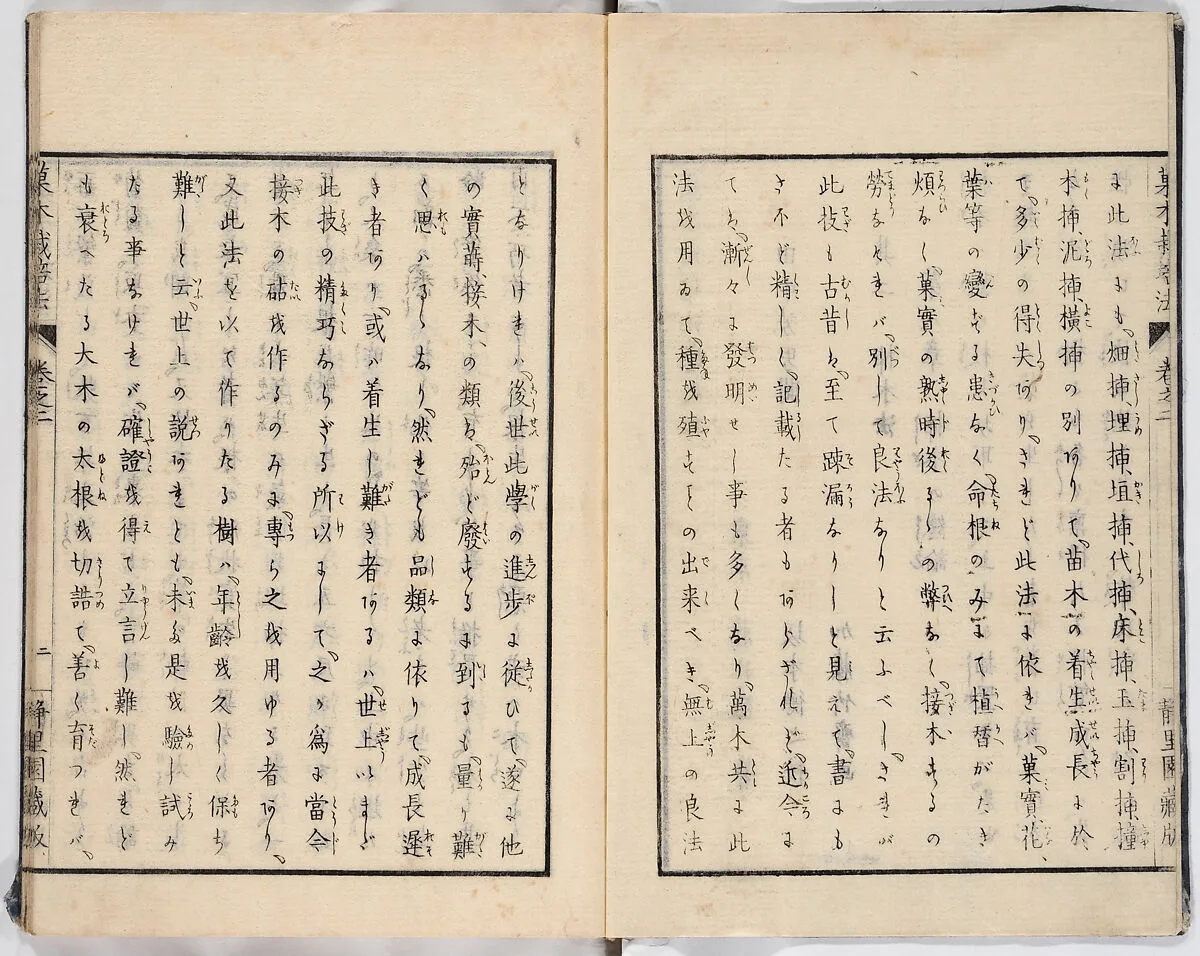 菓木栽培法 卷之二
靜里園藏版
に此法にも、畑揷、埋揷、垣揷、代揷、床揷、玉揷、割揷、撞
本揷、泥揷、橫揷の別ありて、苗木の着生成長に於
て、多少の得失あり、されど此法に依れバ、菓實、花、
葉等の變ずる患なく、命根のみにて植替がたき
煩なく、菓實の熟時後るゝの弊なく、接木するの
勞なければ、別して良法なりと云ふべし、されが
此技も古昔は、至て踈漏なりしと見えて、書にも
さほど精しく、記載たる者もあらざれど、近今に
ては、漸々に發明せし事も多くなり、萬木共に此
法を用ゐて、種を殖すその出来べき、無上の良法
となりければ、後世此學の進步に從ひて、遂に他
の實蒔、接木、の類は、殆ど廢するに到るも、量り難
く思ハるゝなり、然れども品類に依りて、成長遲
き者あり、或ハ着生し難き者あるハ、世上いまだ
此技の精巧ならざる所以にして、之が爲に當今
接木の砧を作るのみに、專ら之を用ゆる者あり、
又此法を以て作りたる樹ハ、年齡を久しく保ち
難しと云、世上の說あれとも、未だ是を驗し試み
たる事なければ、確證を得て立言し難し、然れど
も衰へたる大木の太根を切詰て、善く育つれバ、
菓木栽培法 卷之二 二 靜里園藏版